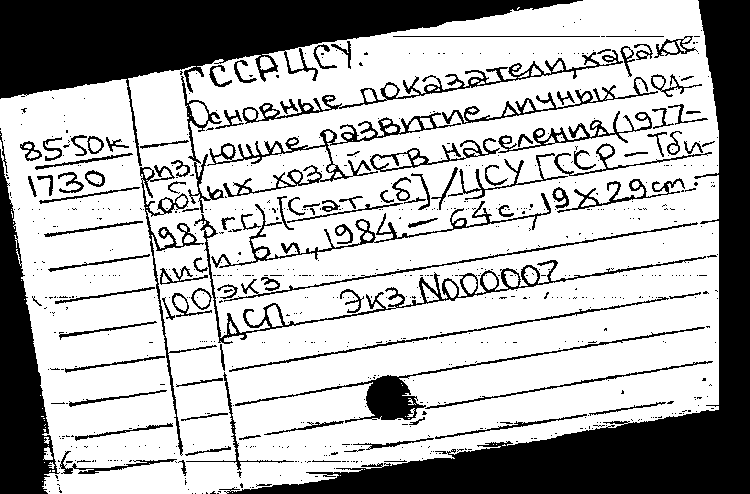 ГССР.ЦСУ.
Основные показатели, характе-
85-50к
ризующие развитие личных под-
1730
собных хозяйств населения (1977-
1983 гг): [Стат. сб.] / ЦСУ ГССР - Тби-
лиси: Б.и., 1984. - 64 с.; 19 X 29 cm. -
100 экз.
ДСП. Экз. N000007